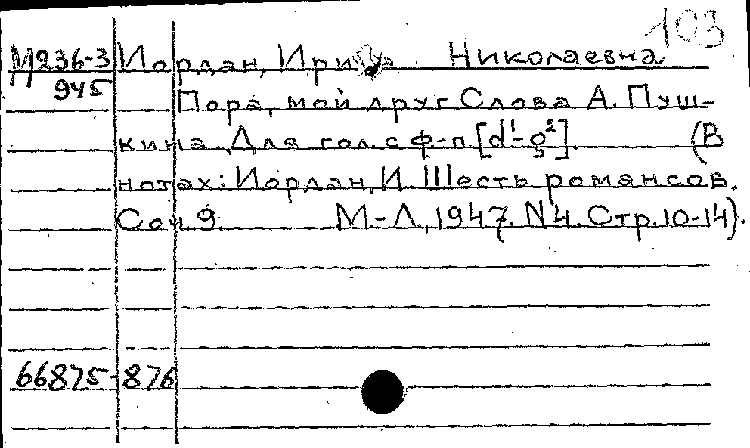 103
М236-3 Иордан, Ирина Николаевна
945 Пора, мой друг Слова А. Пуш-
кина. Для гол. с ф-п [d¹-g²]. (В
нотах: Иордан, И. Шесть романсов.
Соч 9. М-Л, 1947. N4. Стр. 10-14).
66875-876